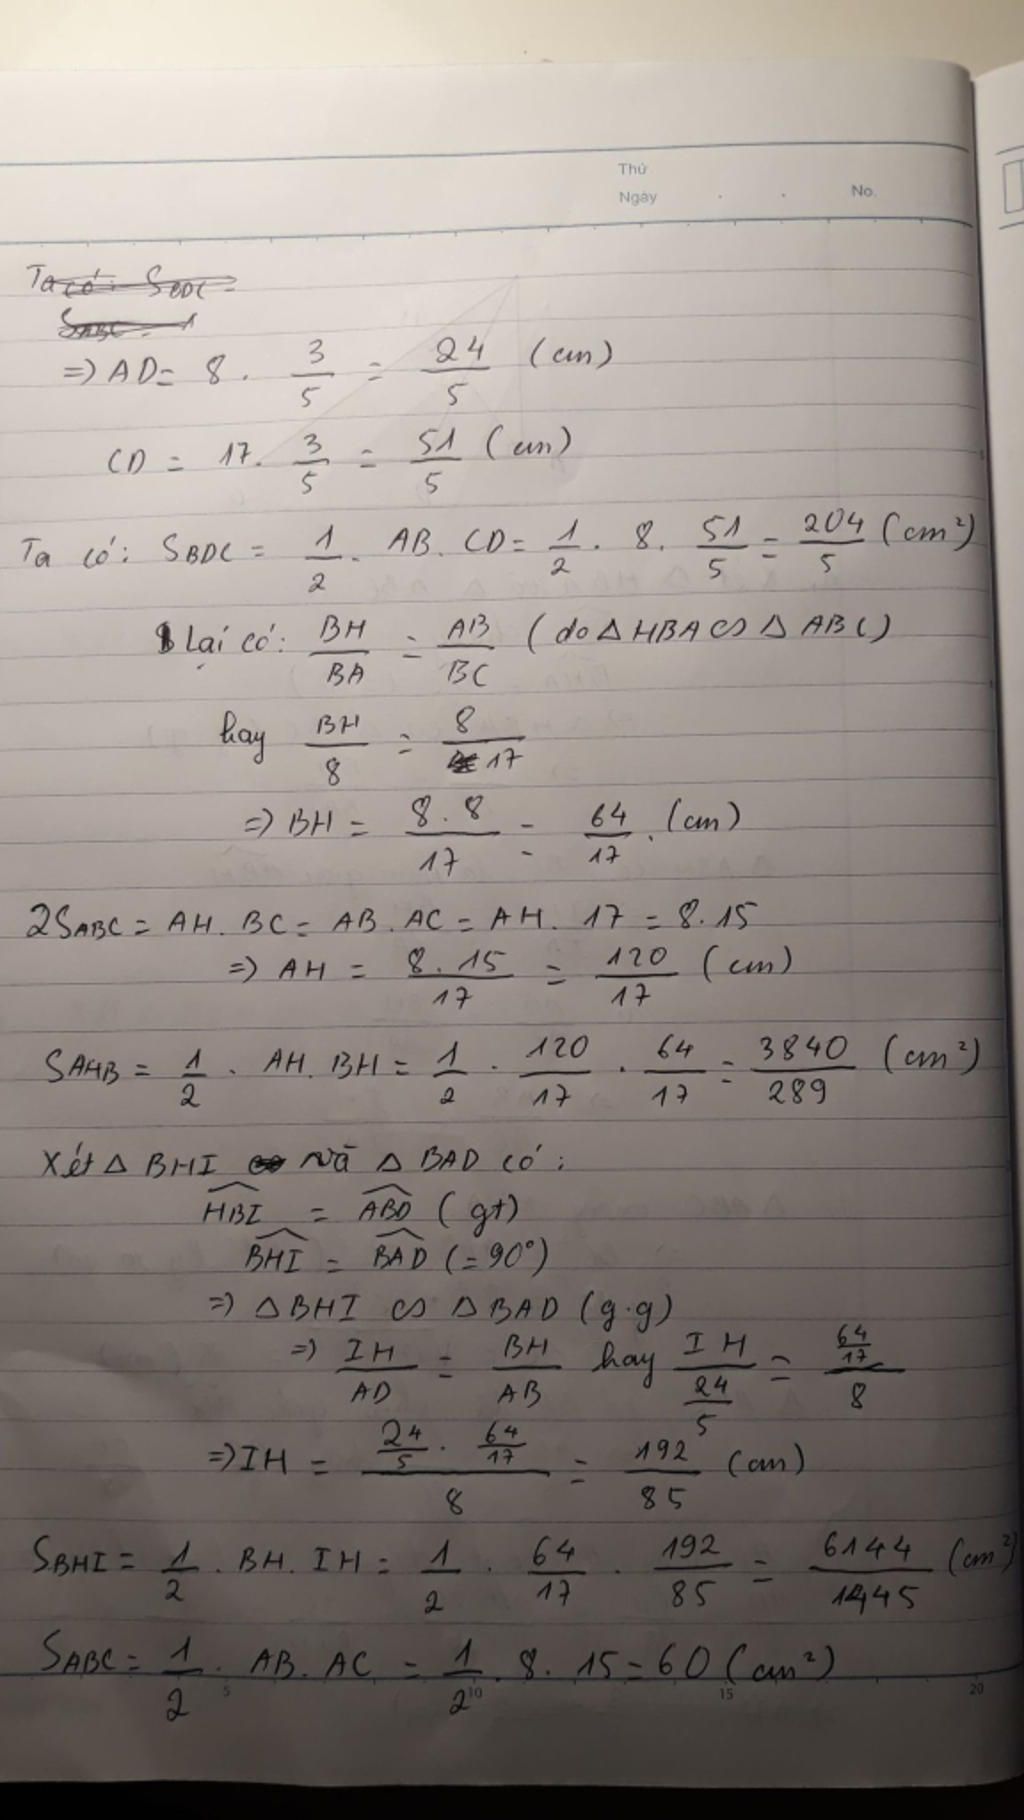 Thứ
Ngày . . No.
Ta có: SBDC =
SABC = 1
=> AD = 8 . 3/5 = 24/5 (cm)
CD = 17 . 3/5 = 51/5 (cm)
Ta có: SBDC = 1/2 . AB . CD = 1/2 . 8 . 51/5 = 204/5 (cm²)
Lại có: BH/BA = AB/BC (do △HBA ∽ △ABC)
hay BH/8 = 8/17
=> BH = 8.8/17 = 64/17 . (cm)
2SABC = AH . BC = AB . AC = AH . 17 = 8.15
=> AH = 8.15/17 = 120/17 (cm)
SAHB = 1/2 . AH . BH = 1/2 . 120/17 . 64/17 = 3840/289 (cm²)
Xét △ BHI và △ BAD có:
HBI = ABD (gt)
BHI = BAD (= 90°)
=> △BHI ∽ △BAD (g.g)
=> IH/AD = BH/AB hay IH/(24/5) = (64/17)/8
=> IH = (24/5 . 64/17)/8 = 192/85 (cm)
SBHI = 1/2 . BH . IH = 1/2 . 64/17 . 192/85 = 6144/1445 (cm²)
SABC = 1/2 . AB . AC = 1/2 . 8 . 15 = 60 (cm²)
5 10 15 20